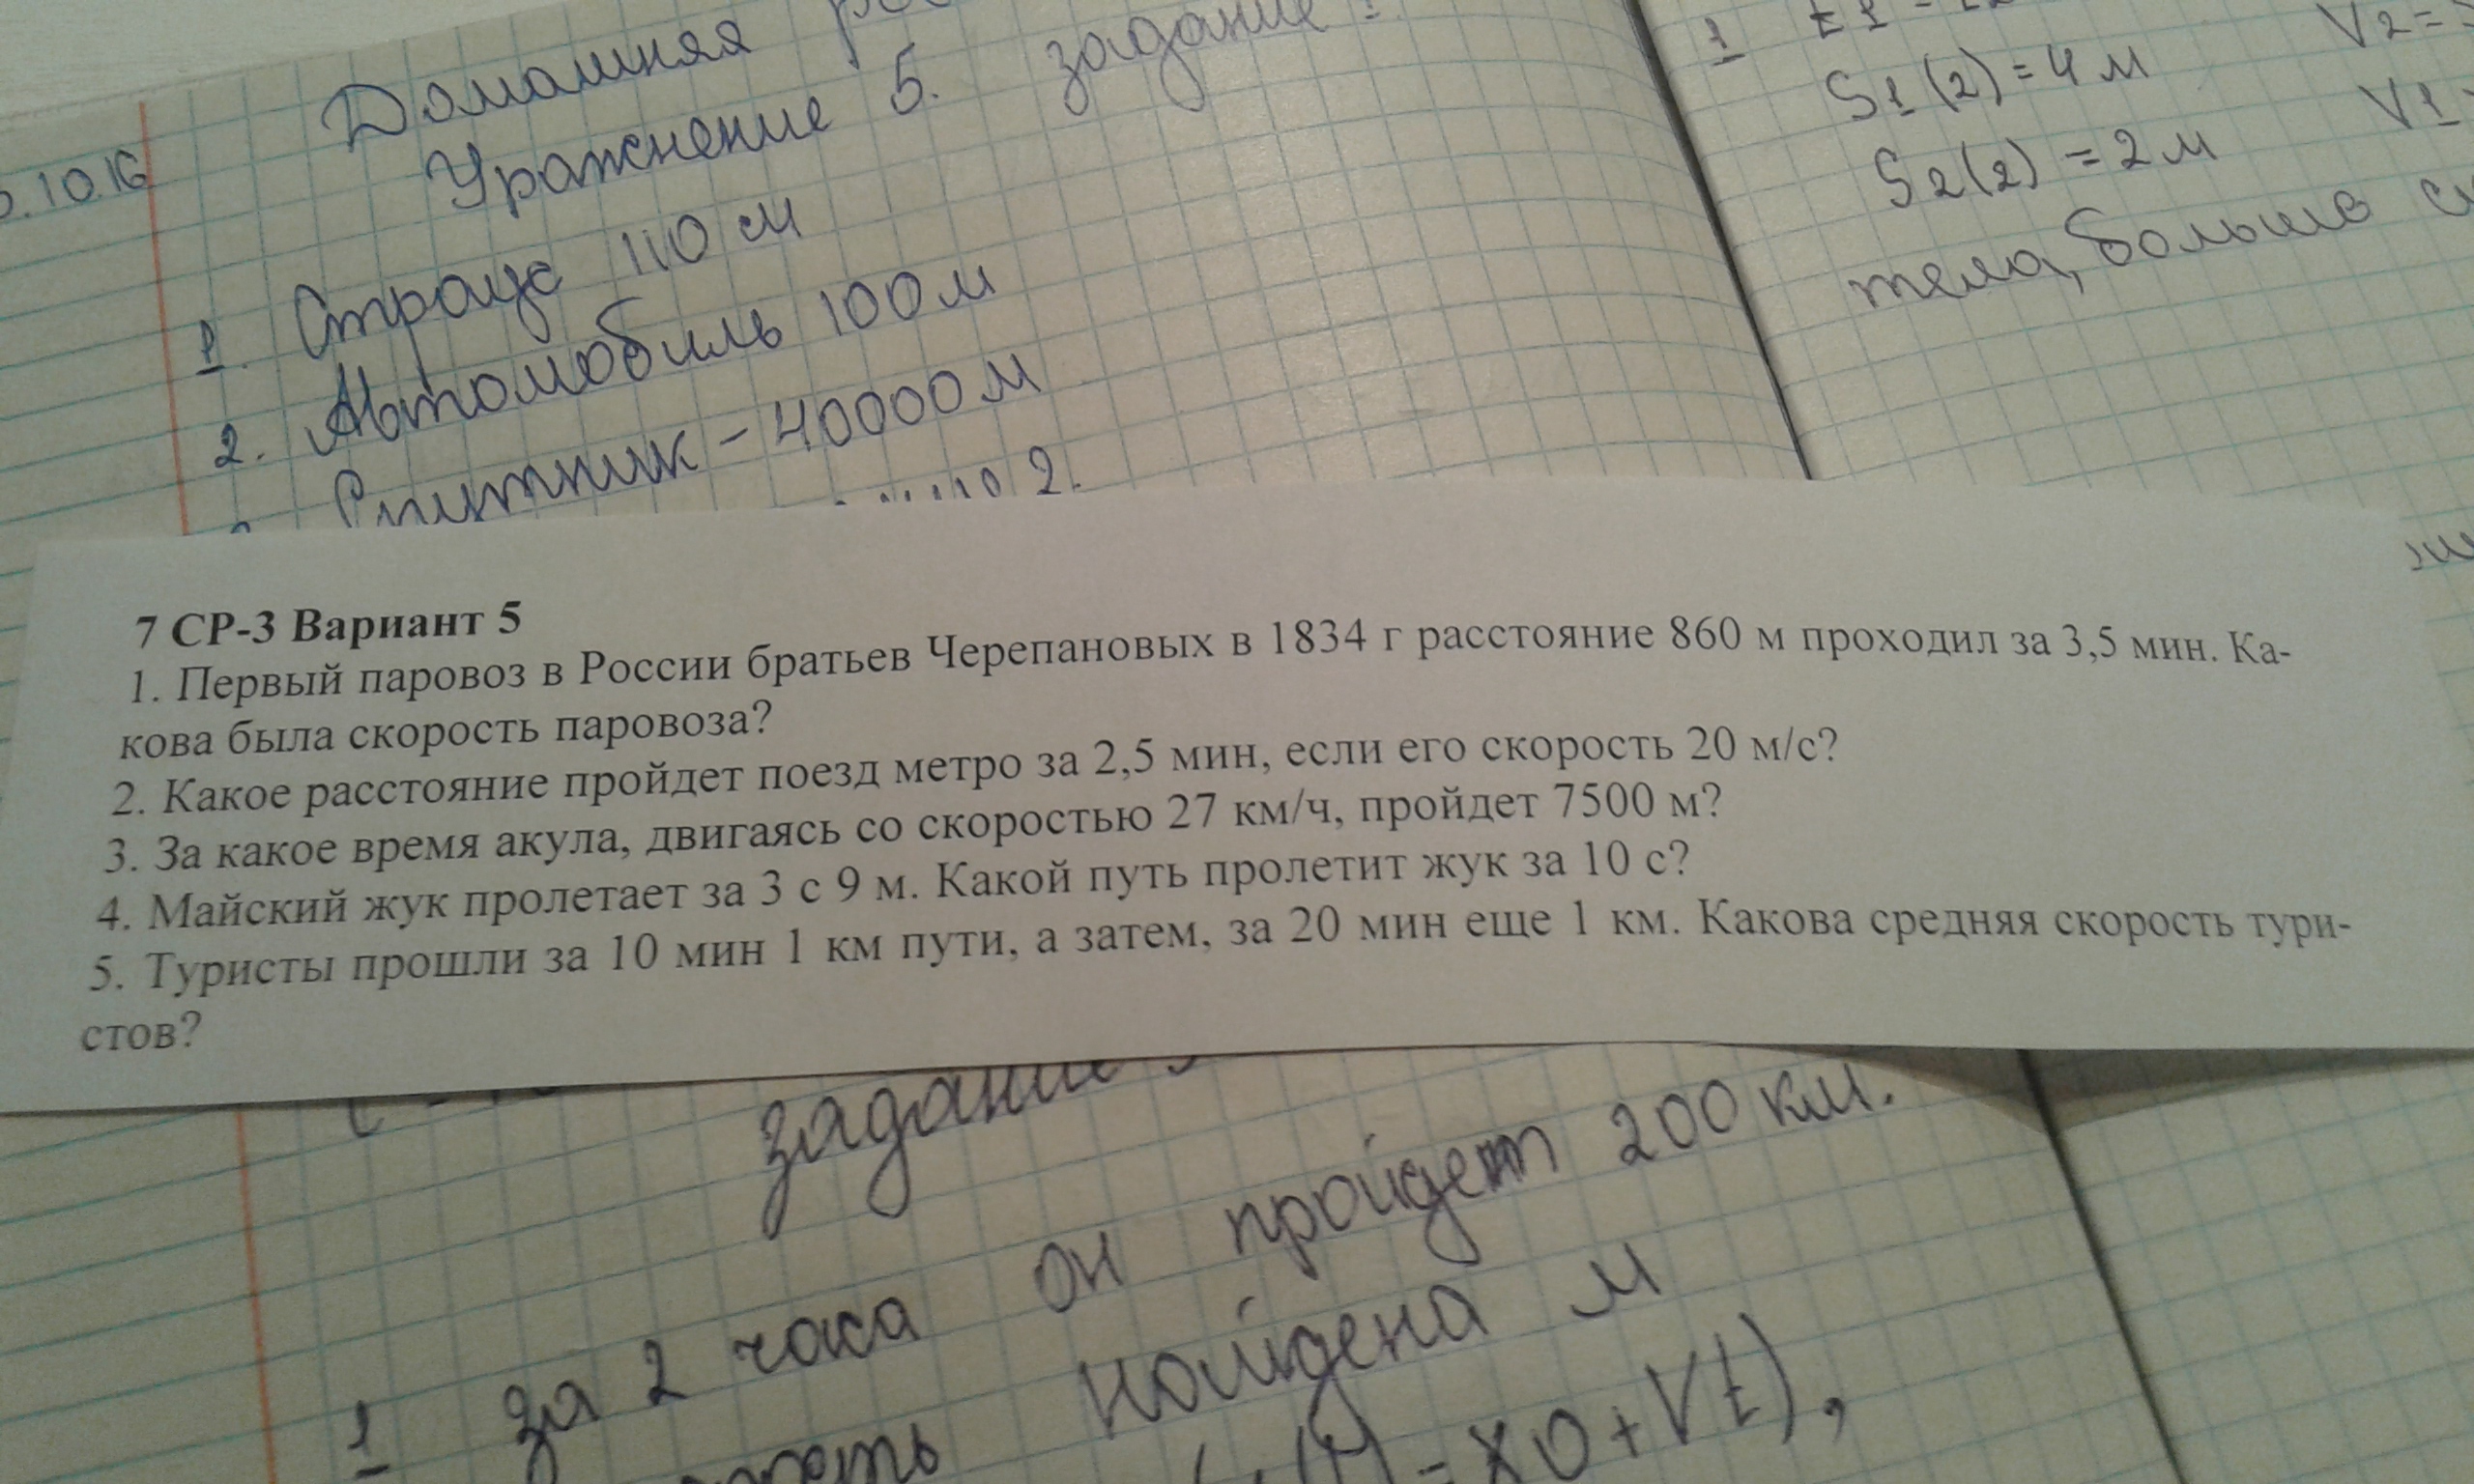 Домашняя
Уражнение 5. задание
5.10.16
1. Страус 110 см
2. Автомобиль 100 м
Спутник - 40000 м
2.
1
S1 (2) = 4 м
V2 =
S2 (2) = 2 м
V1
тела, больше
7 СР-3 Вариант 5
1. Первый паровоз в России братьев Черепановых в 1834 г расстояние 860 м проходил за 3,5 мин. Ка-
кова была скорость паровоза?
2. Какое расстояние пройдет поезд метро за 2,5 мин, если его скорость 20 м/с?
3. За какое время акула, двигаясь со скоростью 27 км/ч, пройдет 7500 м?
4. Майский жук пролетает за 3 с 9 м. Какой путь пролетит жук за 10 с?
5. Туристы прошли за 10 мин 1 км пути, а затем, за 20 мин еще 1 км. Какова средняя скорость тури-
стов?
задание
1 за 2 часа он пройдет 200 км.
найдена м
= x0 + Vt),